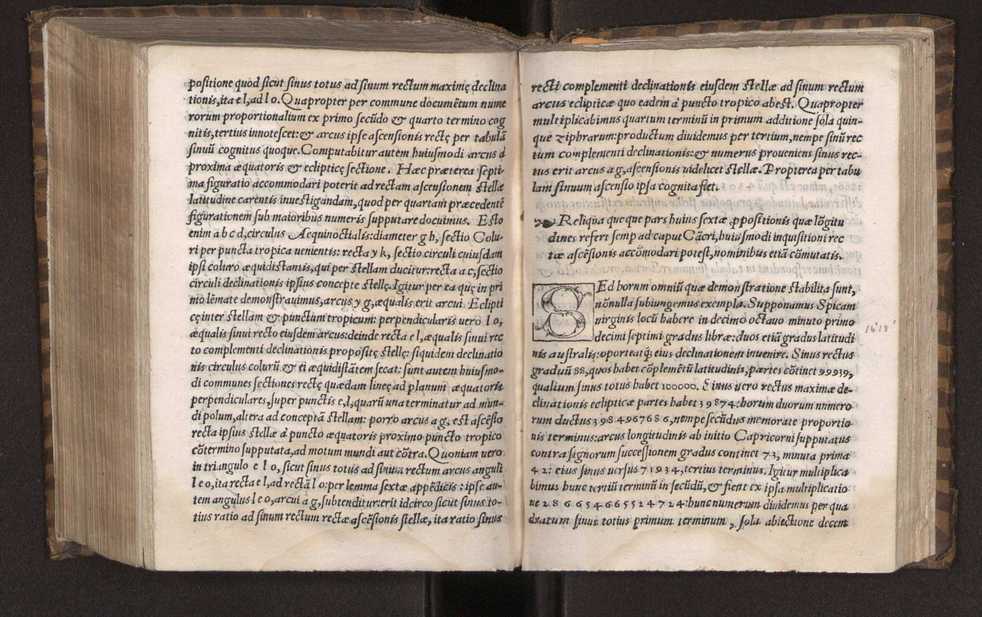 positione quòd sicut sinus totus ad sinum rectum maximę declina
tionis, ita e l, ad l o. Quapropter per commune documẽtum nume
rorum proportionalium ex primo secũdo & quarto termino cog
nitis, tertius innotescet: & arcus ipse ascensionis rectę per tabulã
sinuũ cognitus quoque. Computabitur autem huiusmodi arcus à
proxima æquatoris & eclipticę sectione. Hæc præterea septi-
ma figuratio accommodari poterit ad rectam ascensionem stellæ
latitudine carentis inuestigandam, quod per quartam præcedentẽ
figurationem sub maioribus numeris supputare docuimus. Esto
enim a b c d, circulus Aequinoctialis: diameter g b, sectio Colu-
ri per puncta tropica uenientis: recta y k, sectio circuli cuiusdam
ipsi coluro æquidistantis, qui per stellam ducitur: recta a c, sectio
circuli declinationis ipsius conceptę stellę. Igitur per ea quę in pri
mo lẽmate demonstrauimus, arcus y g, æqualis erit arcui Eclipti
cę inter stellam & punctum tropicum: perpendicularis uero l o,
æqualis sinui recto eiusdem arcus: deinde recta e l, æqualis sinui rec
to complementi declinationis propositę stellę: siquidem declinatio
nis circulus colurũ & ei æquidistãtem secat: sunt autem huiusmo-
di communes sectiones rectę quædam lineę ad planum æquatoris
perpendiculares, super punctis e, l, quarũ una terminatur ad mun-
di polum, altera ad conceptã stellam: porro arcus a g, est ascẽsio
recta ipsius stellæ à puncto æquatoris proximo puncto tropico
cõtermino supputata, ad motum mundi aut cõtra. Quoniam uero
in triangulo e l o, sicut sinus totus ad sinum rectum arcus anguli
l e o, ita recta e l, ad rectã l o: per lemma sextæ appẽdicis: ipse au-
tem angulus l e o, arcui a g, subtenditur: erit idcirco sicut sinus to-
tius ratio ad sinum rectum rectæ ascẽsionis stellæ, ita ratio sinus
recti complementi declinationis eiusdem stellæ ad sinum rectum
arcus eclipticæ quo eadem à puncto tropico abest. Quapropter
multiplicabimus quartum terminũ in primum additione sola quin-
que ziphrarum: productum diuidemus per tertium, nempe sinũ rec
tum complementi declinationis: & numerus proueniens sinus rec-
tus erit arcus a g, ascensionis uidelicet stellæ. Propterea per tabu
lam sinuum ascensio ipsa cognita fiet.
Reliqua queque pars huius sextæ ꝓpositionis quæ lõgitu
dines refert semꝑ ad caput Cãcri, huiusmodi inquisitioni rec
tæ ascẽsionis accõmodari potest, nominibus etiã cõmutatis.
SEd horum omniũ quæ demonstratione stabilita sunt,
nõnulla subiungemus exempla. Supponamus Spicam
uirginis locũ habere in decimo octauo minuto primo
decimi septimi gradus libræ: duos etiã gradus latitudi
nis australis: oporteatq́; eius declinationem inuenire. Sinus rectus
graduũ 88, quos habet cõplemẽtũ latitudinis, partes cõtinet 99939,
qualium sinus totus habet 100000. Sinus uero rectus maximæ de-
clinationis eclipticæ partes habet 39874: horum duorum numero
rum ductus 3984967686, nempe secũdus memoratæ proportio
nis terminus: arcus longitudinis ab initio Capricorni supputatus
contra signorum successionem gradus continet 73, minuta prima
42: eius sinus uersus 71934, tertius terminus. Igitur multiplica
bimus hunc tertiũ terminũ in secũdũ, & fient ex ipsa multiplicatio
ne 286654665524724: hunc numerum diuidemus per qua
dratum sinus totius primum terminum, sola abiectione decem